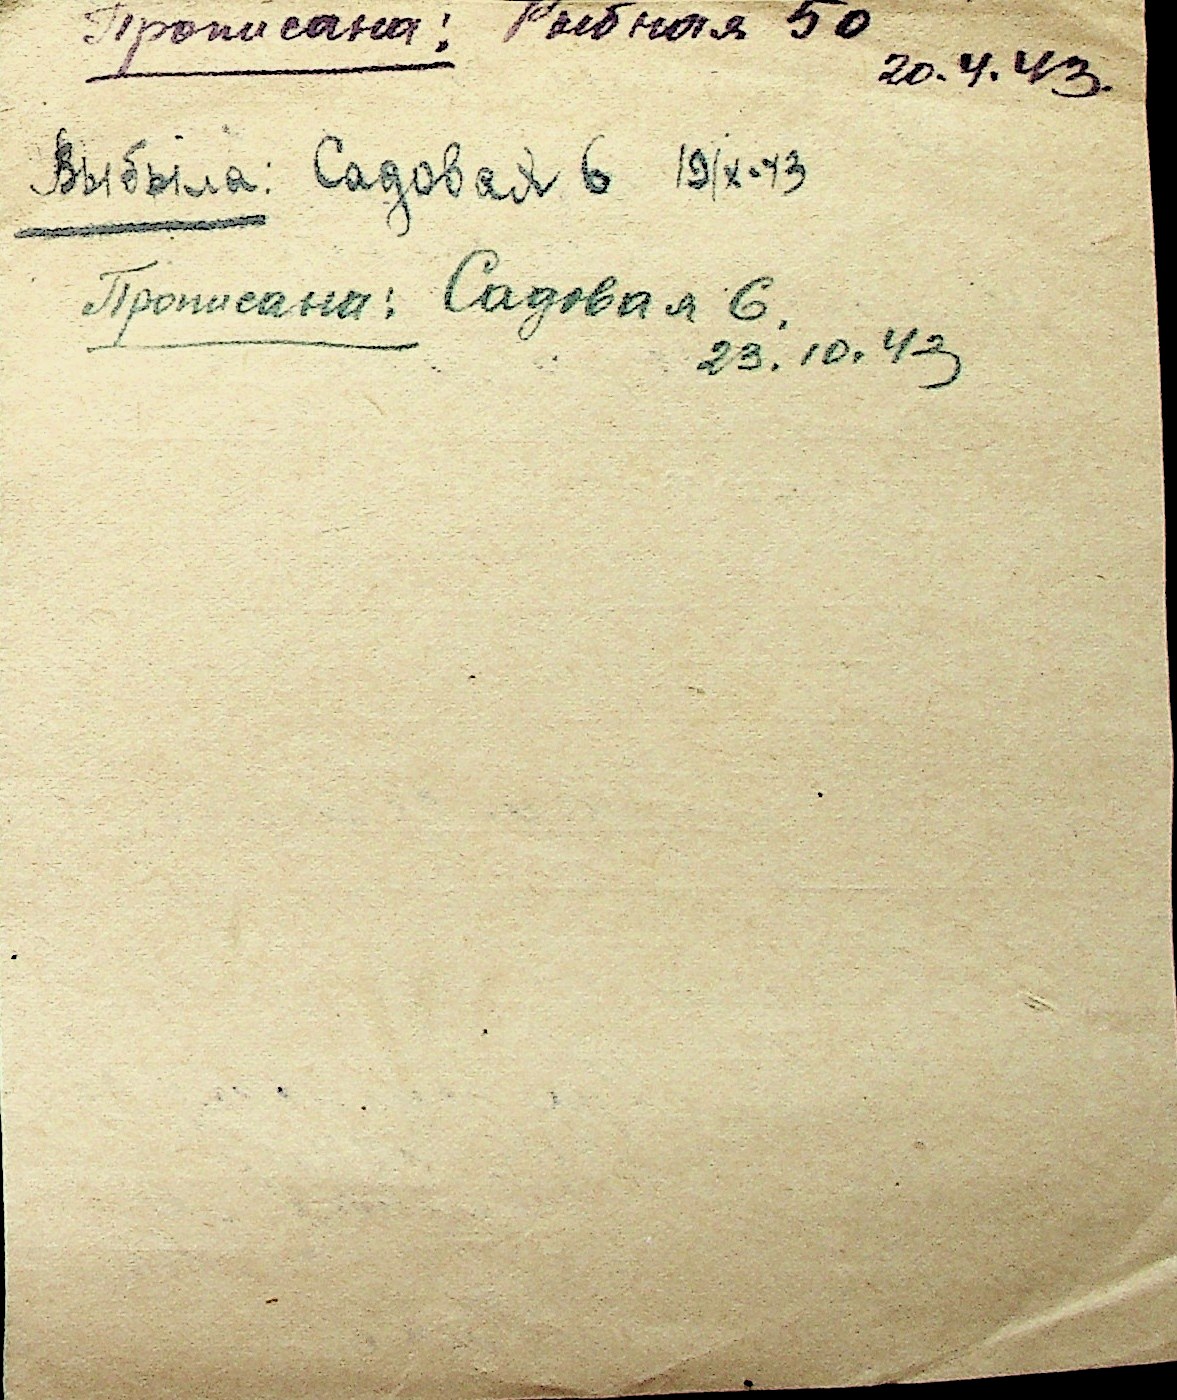 Прописана: Рыбная 50
20.4.43.
Выбыла: Садовая 6 19/X-43
Прописана: Садовая 6.
23.10.43